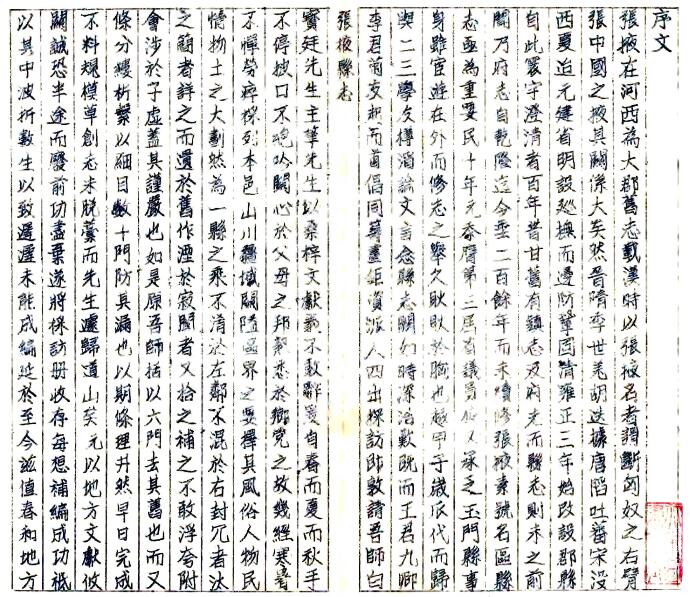 序文
張掖在河西為大郡舊志載漢時以張掖名者謂斷匈奴之右臂
張中國之掖其關係大矣然晋隋李世羌胡迭據唐陷吐蕃宋沒
西夏迨元建省明設廵撫而邊防鞏固清雍正三年始改設郡縣
自此寰宇澄清者百年昔甘舊有鎮志及府志而縣志則未之前
聞乃府志自乾隆迄今垂二百餘年而未續修張掖素號名區縣
志亟為重要民十年元忝膺第三届省議員但人承乏玉門縣事
身雖宦遊在外而修志之舉久耿耿於胸也越甲子歲瓜代而歸
與二三學友樽酒論文言念縣志闕如時深浩歎既而王君九卿
李君蔚支起而首倡同着畫鉅資派人四出採訪即敦請吾師白
張掖縣志
寶廷先生主筆先生以桑梓文獻義不敢辭爰自春而夏而秋手
不停披口不绝吟關心於父母之邦繫懋於鄉党之故幾經寒暑
不憚勞瘁採列本邑山川疆域關隘區界之要擇其風俗人物民
情物土之大劃然為一縣之乘不淆於左鄰不混於右封冗者汰
之簡者詳之而遺於舊作湮於寂聞者又拾之補之不敢浮夸附
會涉於子虛蓋其謹嚴也如是原吾師括以六門去其舊也而又
條分縷析繫以細目數十門防其漏也以期條理井然早日完成
不料規模草創志未脱藁而先生遽歸道山矣元以地方文獻攸
關誠恐半途而廢前功盡棄遂將採訪册收存每想補編成功祗
以其中波折數生以致遷延未能成編延於至今兹值春和地方